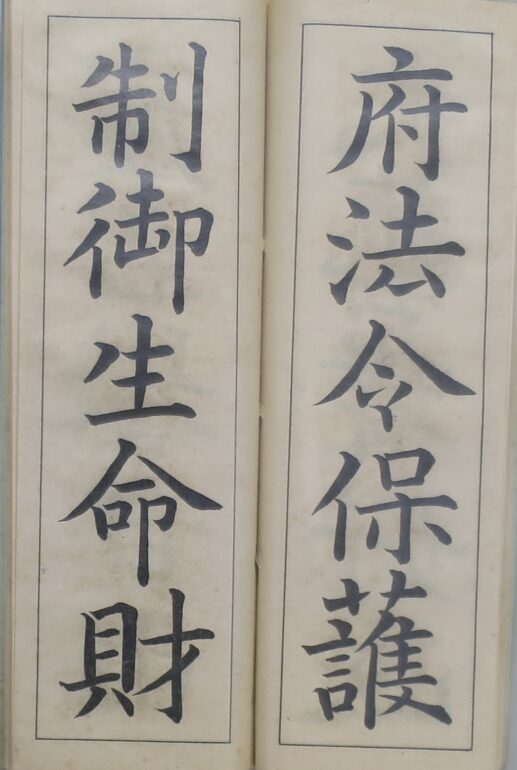 府法令保護
制御生命財